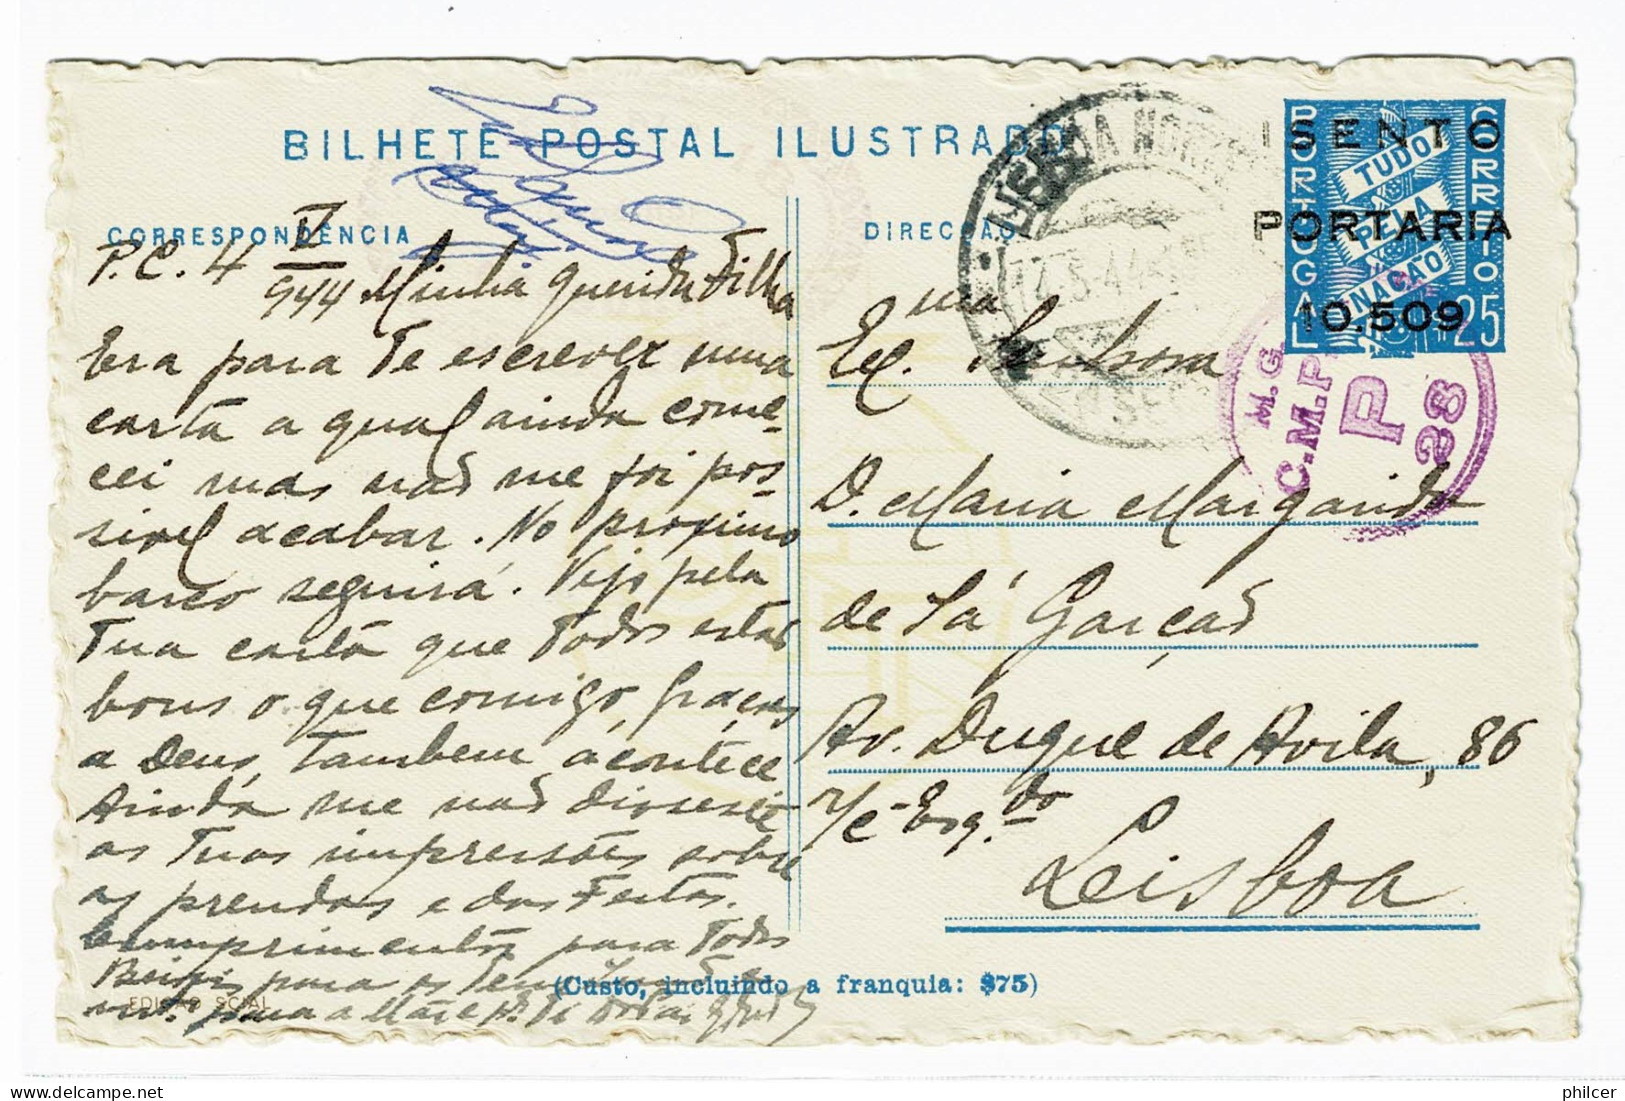 BILHETE POSTAL ILUSTRADO
CORRESPONDÊNCIA
P.C. 4 V 944
Minha querida Filha
Era para Te escrever uma
carta a qual ainda come-
cei mas não me foi pos-
sivel acabar. No proximo
barco seguirá. Vejo pela
Tua carta que Todos estão
bons o que comigo, graças
a Deus, Tambem acontece
Ainda me não disseste
as Tuas impressões sobre
as prendas e das Festas.
Cumprimentos para Todos
Beijos para os Teus
para a Mãe e
EDIÇÃO SCIAL
(Custo, incluindo a franquia: $75)
DIRECÇÃO
Ex.ma Senhora
D. Maria Margarida
de Sá Garção
Av. Duque de Avila, 86
r/c - Esq.do
Lisboa
LISBOA NORTE
PORTUGAL
CORREIO
TUDO
PELA
NAÇÃO
25
ISENTO
PORTARIA
10.509
M.G.
C.M.P.
P
28
philcer